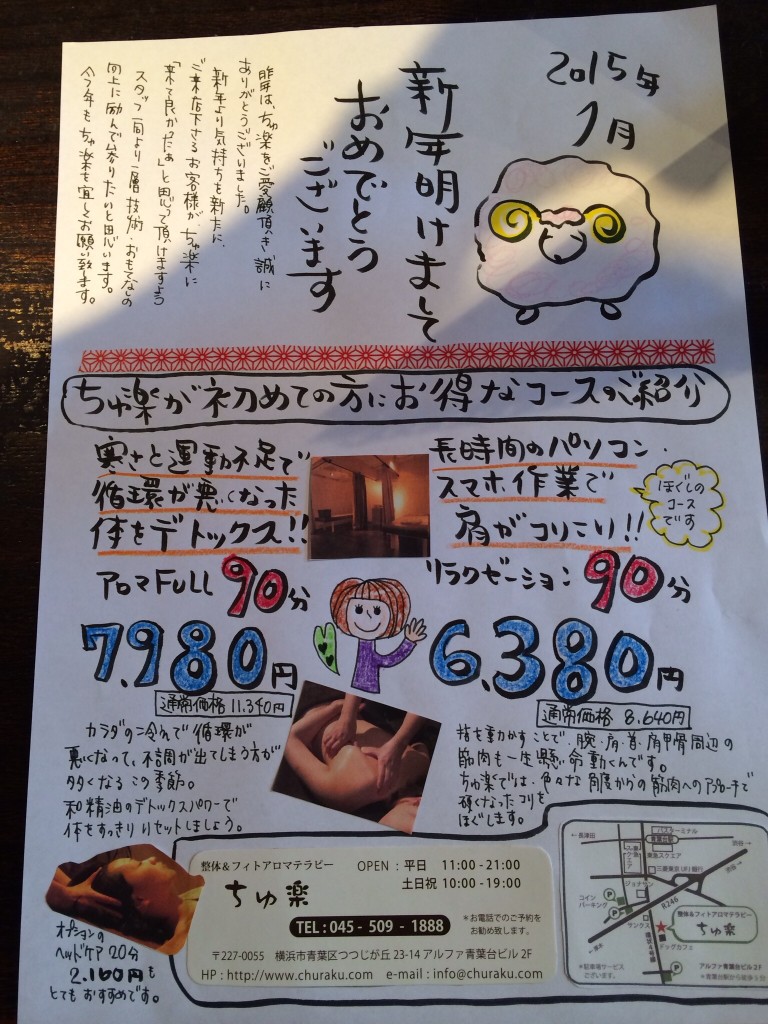 2015年
1月
新年明けまして
おめでとう
ございます
昨年は、ちゅ楽をご愛顧頂き誠に
ありがとうございました。
新年より気持ちを新たに、
ご来店下さるお客様が、ちゅ楽に
「来て良かったぁ」と思って頂けますよう
スタッフ一同より一層技術・おもてなしの
向上に励んで参りたいと思います。
今年もちゅ楽を宜しくお願い致します。
ちゅ楽が初めての方にお得なコースのご紹介
寒さと運動不足で
循環が悪くなった
体をデトックス!!
アロマFULL 90分
7,980円
通常価格 11,340円
カラダの冷えで循環が
悪くなって、不調が出てしまう方が
多くなるこの季節。
和精油のデトックスパワーで
体をすっきりリセットしましょう。
長時間のパソコン・
スマホ作業で
肩がコリコリ!!
ほぐしの
コース
です
リラクゼーション 90分
6,380円
通常価格 8,640円
指を動かすことで、腕・肩・首・肩甲骨周辺の
筋肉も一生懸命動くんです。
ちゅ楽では、色々な角度からの筋肉へのアプローチで
硬くなったコリを
ほぐします。
オプションの
ヘッドケア 20分
2,160円も
とてもおすすめです。
整体&フィトアロマテラピー
ちゅ楽
OPEN : 平日 11:00-21:00
土日祝 10:00-19:00
TEL : 045 - 509 - 1888
*お電話でのご予約を
お勧め致します。
〒227-0055 横浜市青葉区つつじが丘 23-14 アルファ青葉台ビル 2F
HP : http://www.churaku.com e-mail : info@churaku.com
←長津田
バスターミナル
青葉台駅
渋谷→
東急スクエア
三菱東京UFJ銀行
ジョナサン
コイン
パーキング
P
P
R246
サンクス
整体&フィトアロマテラピー
ちゅ楽
ドッグカフェ
環状4号線
P
*駐車場サービス
ございます。
アルファ青葉台ビル2F